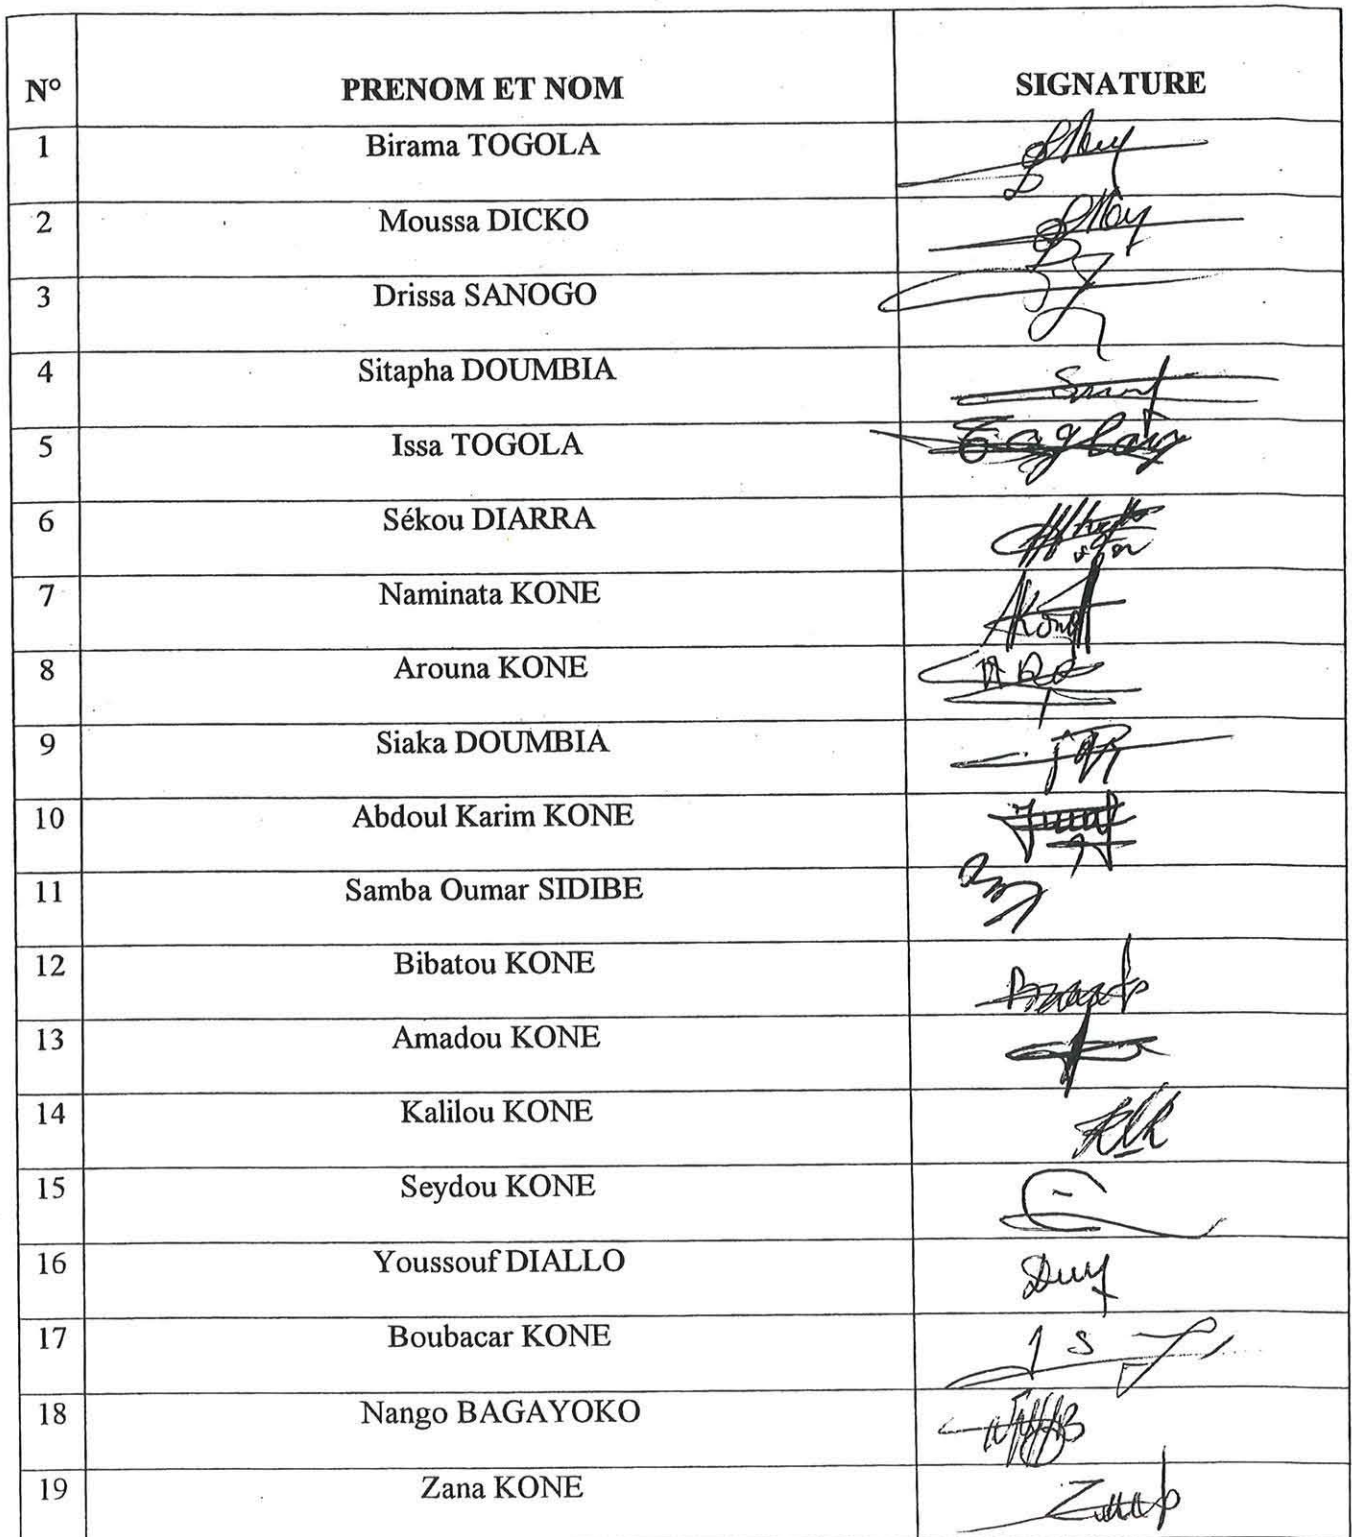 N° PRENOM ET NOM SIGNATURE
1 Birama TOGOLA
2 Moussa DICKO
3 Drissa SANOGO
4 Sitapha DOUMBIA
5 Issa TOGOLA
6 Sékou DIARRA
7 Naminata KONE
8 Arouna KONE
9 Siaka DOUMBIA
10 Abdoul Karim KONE
11 Samba Oumar SIDIBE
12 Bibatou KONE
13 Amadou KONE
14 Kalilou KONE
15 Seydou KONE
16 Youssouf DIALLO
17 Boubacar KONE
18 Nango BAGAYOKO
19 Zana KONE